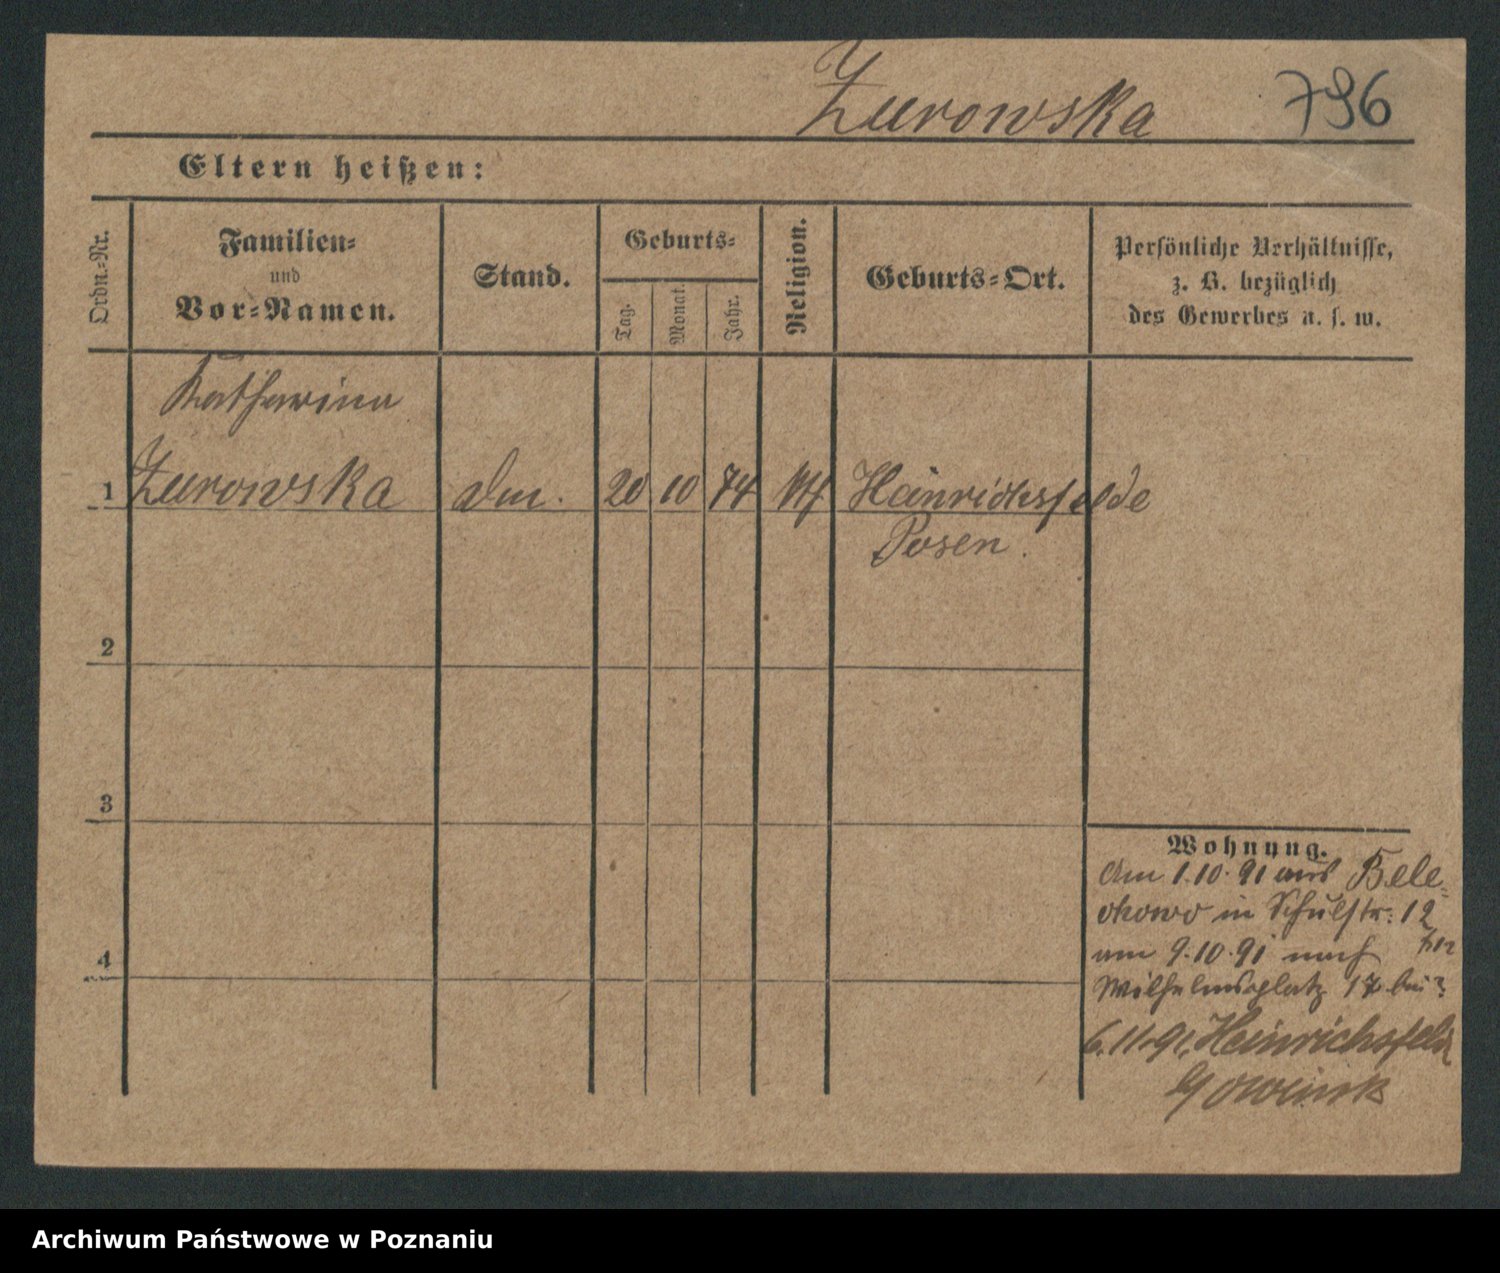 Zurowska 796
Eltern heißen:
Ordn.-Nr.
Familien-
und
Vor-Namen.
Stand.
Geburts-
Tag.
Monat.
Jahr.
Religion.
Geburts-Ort.
Persönliche Verhältnisse,
z. B. bezüglich
des Gewerbes u. s. w.
Katharina
1 Zurowska 20 10 74 Heinrichsfelde
Posen.
2
3
4
Wohnung.
Am 1.10.91 aus Bele-
in Schulstr. 12
am 9.10.91 nach
Wilhelmsplatz 17 bei
6.11.91. Heinrichsfeld
Archiwum Państwowe w Poznaniu